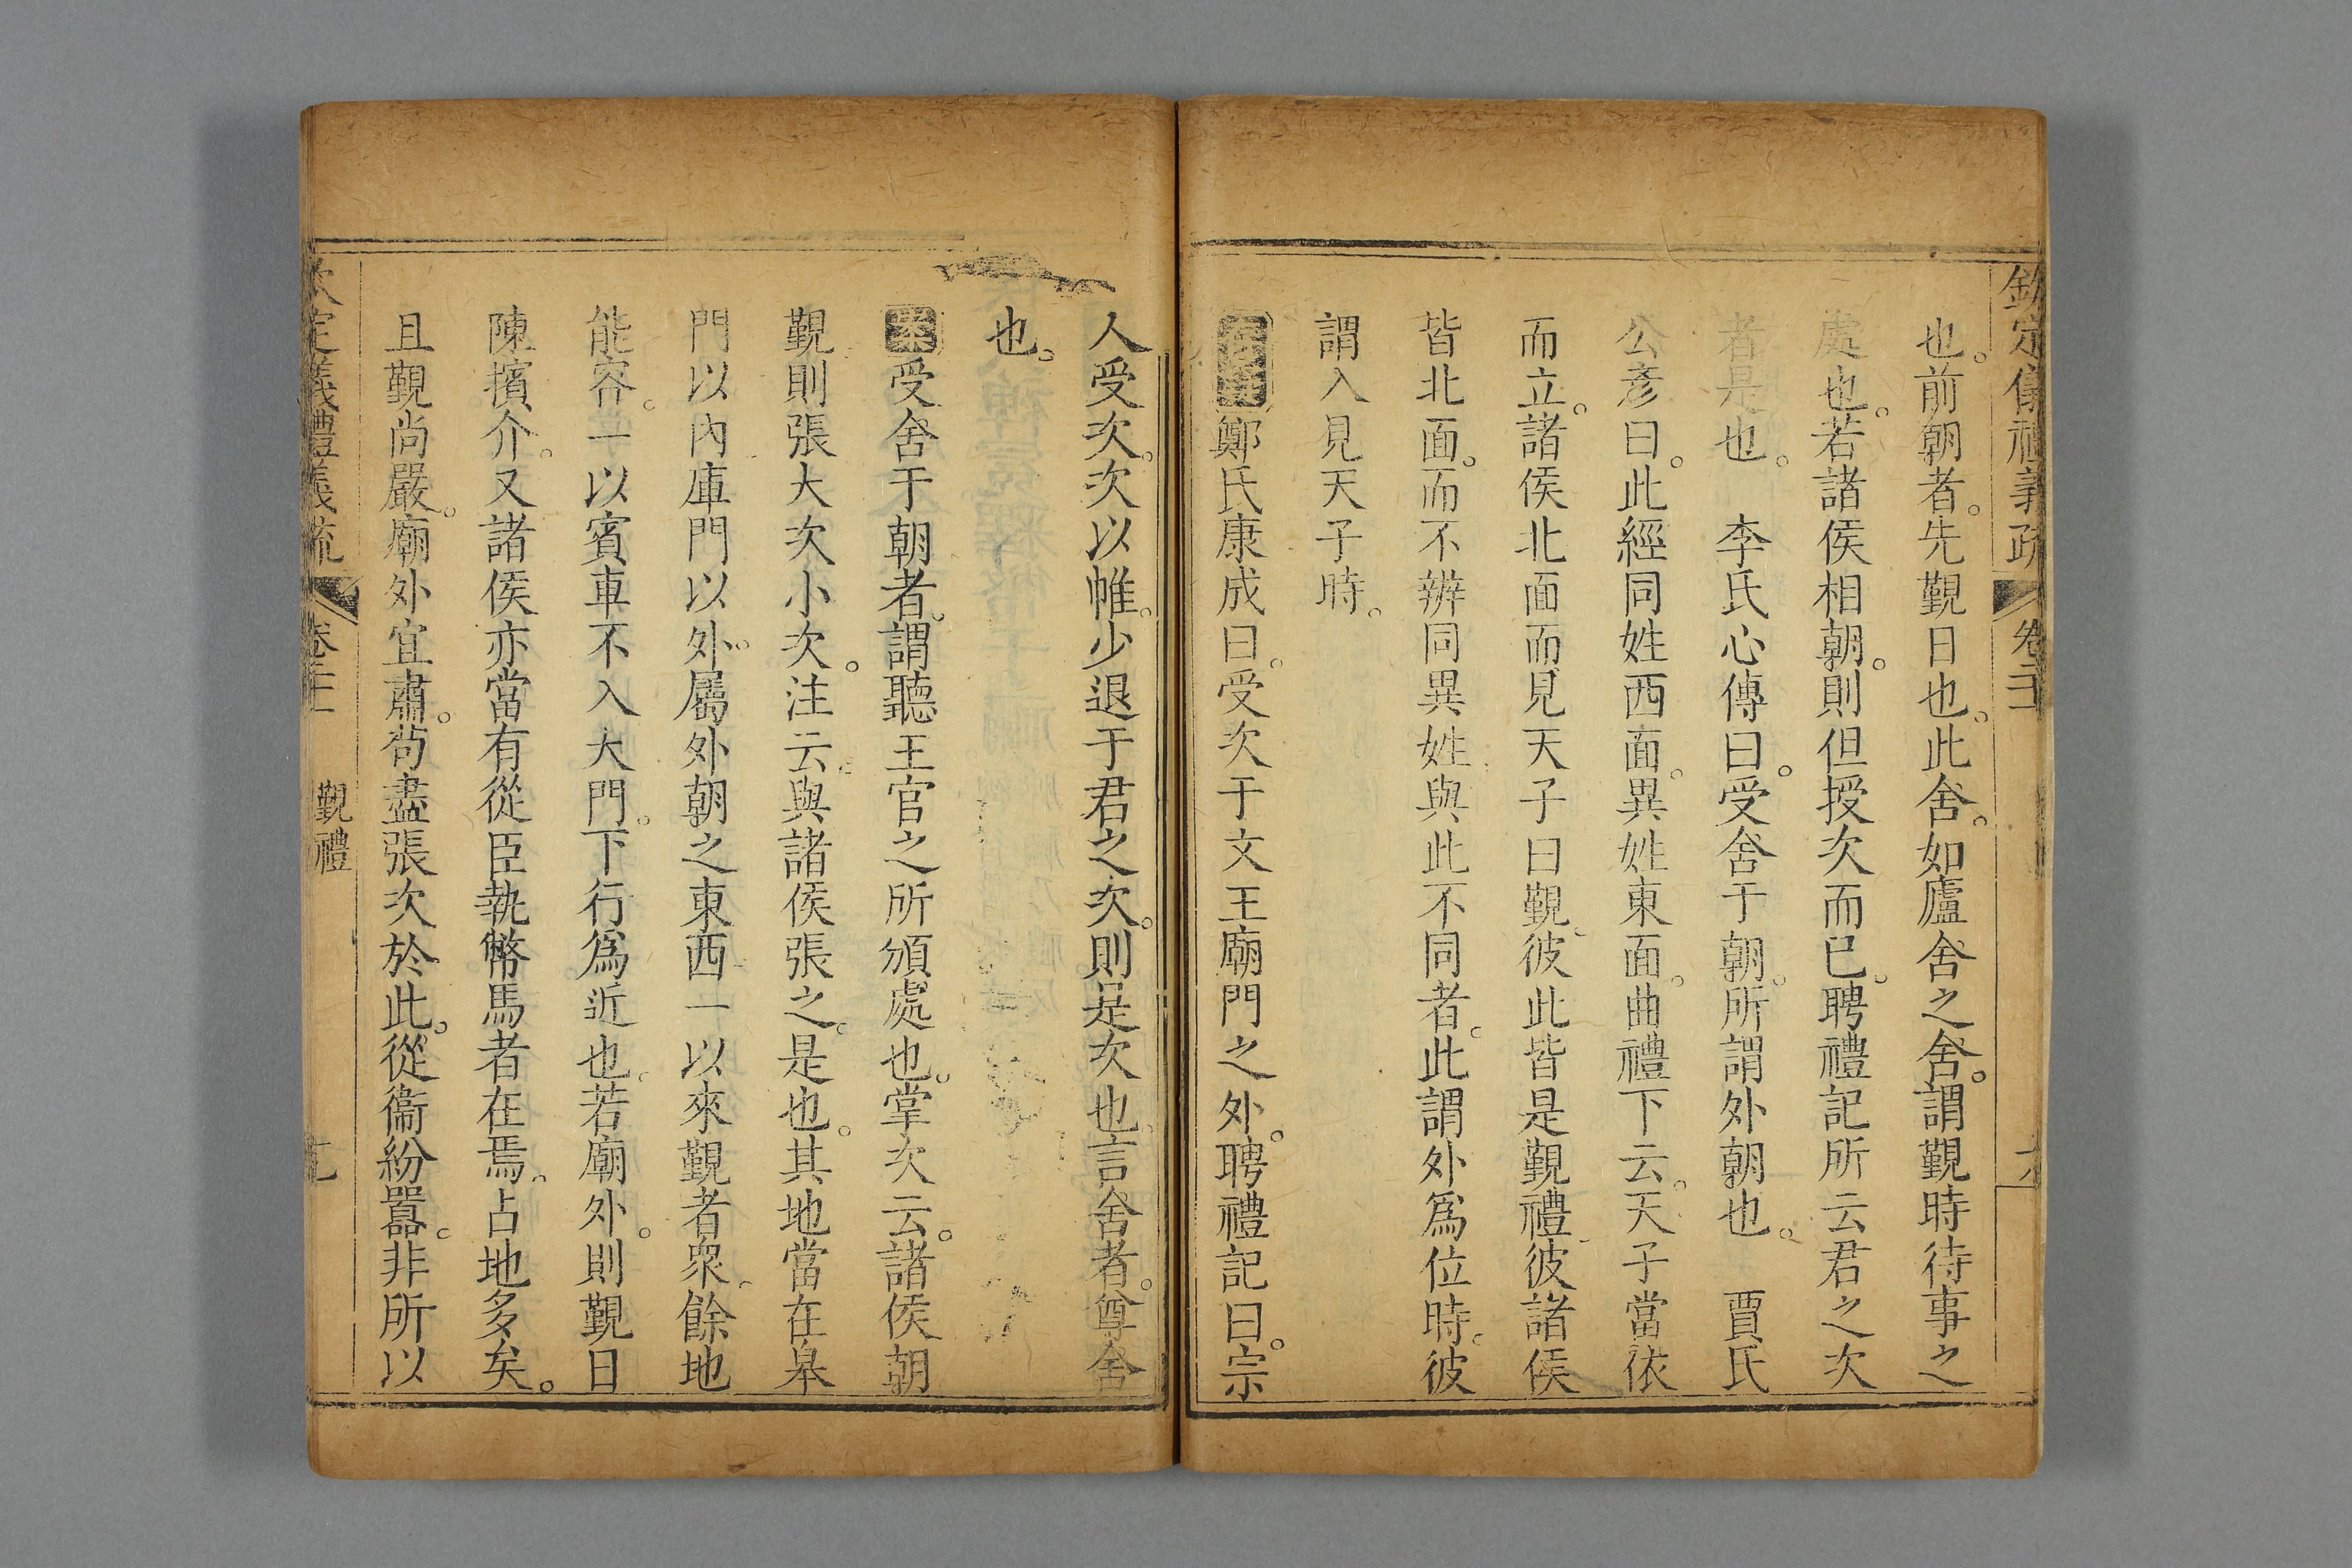 欽定儀禮義疏 卷二十
也。前朝者。先覲日也。此舍。如廬舍之舍。謂覲時待事之
處也。若諸侯相朝。則但授次而已。聘禮記所云君之次
者是也。 李氏心傳曰。受舍于朝。所謂外朝也。 賈氏
公彥曰。此經同姓西面。異姓東面。曲禮下云。天子當依
而立。諸侯北面而見天子曰覲。彼此皆是覲禮。彼諸侯
皆北面。而不辨同異姓。與此不同者。此謂外爲位時。彼
謂入見天子時。
鄭氏康成曰。受次于文王廟門之外。聘禮記曰。宗
人受次。次以帷。少退于君之次。則是次也。言舍者。尊舍
也。
案受舍于朝者。謂聽王官之所頒處也。掌次云。諸侯朝
覲則張大次小次。注云。與諸侯張之。是也。其地當在皋
門以內庫門以外。屬外朝之東西一以來覲者眾。餘地
能容。一以賓車不入大門。下行爲近也。若廟外。則覲日
陳擯介。又諸侯亦當有從臣執幣馬者在焉。占地多矣。
且覲尚嚴。廟外宜肅。苟盡張次於此。從衞紛囂。非所以
欽定義禮義疏 卷二十 覲禮